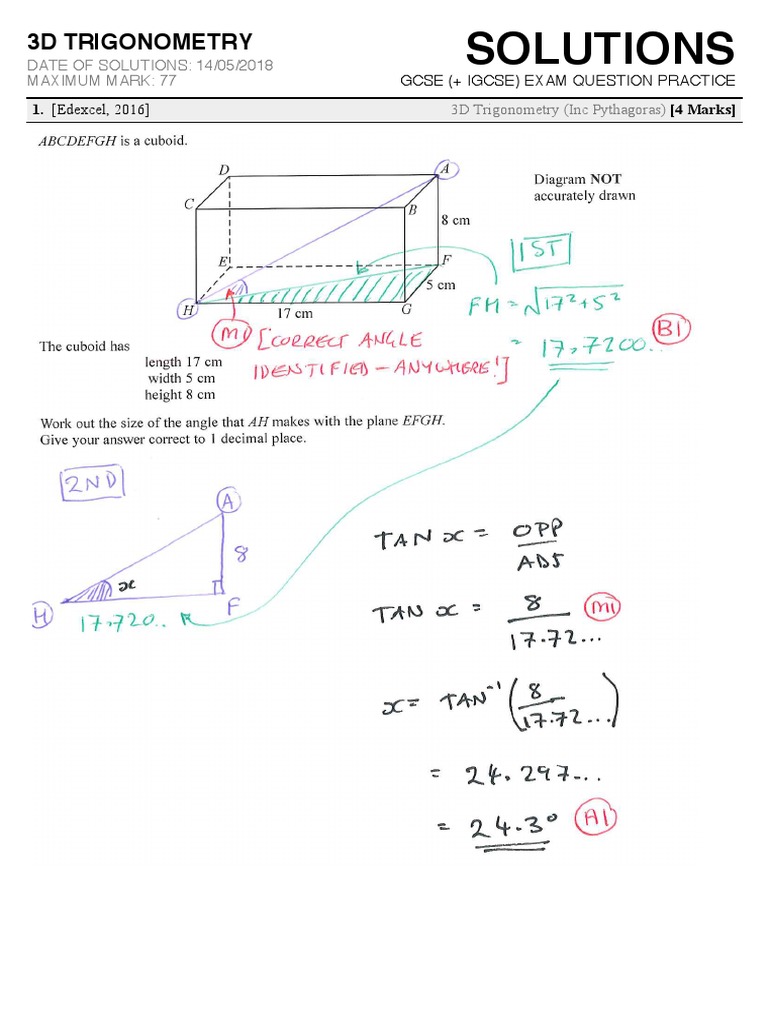 3D TRIGONOMETRY
SOLUTIONS
DATE OF SOLUTIONS: 14/05/2018
MAXIMUM MARK: 77
GCSE (+ IGCSE) EXAM QUESTION PRACTICE
1. [Edexcel, 2016] 3D Trigonometry (Inc Pythagoras) [4 Marks]
ABCDEFGH is a cuboid.
D
A
Diagram NOT
accurately drawn
C
B
8 cm
1ST
E
F
5 cm
FH = √17² + 5²
H
17 cm
G
M1 [CORRECT ANGLE
IDENTIFIED - ANYWHERE!]
= 17.7200.. B1
The cuboid has
length 17 cm
width 5 cm
height 8 cm
Work out the size of the angle that AH makes with the plane EFGH.
Give your answer correct to 1 decimal place.
2ND
A
8
x
H
F
17.720..
TAN x = OPP
ADJ
TAN x = 8 M1
17.72...
x = TAN⁻¹ (8
17.72...)
= 24.297...
= 24.3° A1